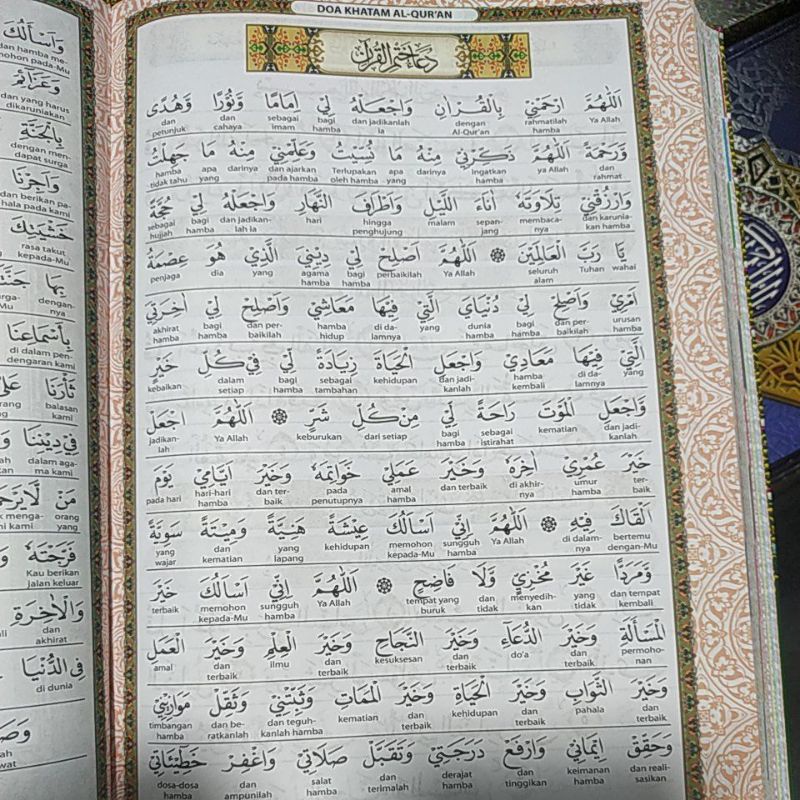 DOA KHATAM AL-QUR'AN
دعاء ختم القرآن
اَللّٰهُمَّ ارْحَمْنِيْ بِالْقُرْاٰنِ وَاجْعَلْهُ لِيْ اِمَامًا وَّنُوْرًا وَّهُدًى
Ya Allah rahmatilah hamba dengan Al-Qur'an dan jadikanlah ia bagi hamba sebagai imam dan cahaya dan petunjuk
وَّرَحْمَةً اَللّٰهُمَّ ذَكِّرْنِيْ مِنْهُ مَا نُسِّيْتُ وَعَلِّمْنِيْ مِنْهُ مَا جَهِلْتُ
dan rahmat ya Allah ingatkan hamba darinya apa yang Terlupakan oleh hamba dan ajarkan pada hamba darinya apa yang hamba tidak tahu
وَارْزُقْنِيْ تِلَاوَتَهٗ اٰنَاءَ اللَّيْلِ وَاَطْرَافَ النَّهَارِ وَاجْعَلْهُ لِيْ حُجَّةً
dan karuniakan hamba membacanya sepanjang malam hingga penghujung hari dan jadikanlah ia bagi hamba sebagai hujjah
يَّا رَبَّ الْعَالَمِيْنَ ۞ اَللّٰهُمَّ اَصْلِحْ لِيْ دِيْنِيَ الَّذِيْ هُوَ عِصْمَةُ
wahai Tuhan seluruh alam Ya Allah perbaikilah bagi hamba agama hamba yang dia penjaga
اَمْرِيْ وَاَصْلِحْ لِيْ دُنْيَايَ الَّتِيْ فِيْهَا مَعَاشِيْ وَاَصْلِحْ لِيْ اٰخِرَتِيَ
urusan hamba dan perbaikilah bagi hamba dunia hamba yang di dalamnya hamba hidup dan perbaikilah bagi hamba akhirat hamba
الَّتِيْ فِيْهَا مَعَادِيْ وَاجْعَلِ الْحَيَاةَ زِيَادَةً لِّيْ فِيْ كُلِّ خَيْرٍ
yang di dalamnya hamba kembali dan jadikanlah kehidupan sebagai tambahan bagi hamba dalam setiap kebaikan
وَّاجْعَلِ الْمَوْتَ رَاحَةً لِّيْ مِنْ كُلِّ شَرٍّ ۞ اَللّٰهُمَّ اجْعَلْ
dan jadikanlah kematian sebagai istirahat bagi hamba dari setiap keburukan Ya Allah jadikanlah
خَيْرَ عُمْرِيْ اٰخِرَهٗ وَخَيْرَ عَمَلِيْ خَوَاتِمَهٗ وَخَيْرَ اَيَّامِيْ يَوْمَ
terbaik umur hamba di akhirnya dan terbaik amal hamba pada penutupnya dan terbaik hari-hari hamba pada hari
اَلْقَاكَ فِيْهِ ۞ اَللّٰهُمَّ اِنِّيْ اَسْاَلُكَ عِيْشَةً هَنِيَّةً وَّمِيْتَةً سَوِيَّةً
bertemu dengan-Mu di dalamnya Ya Allah sungguh hamba memohon kepada-Mu kehidupan yang lapang dan kematian yang wajar
وَّمَرَدًّا غَيْرَ مُخْزِيْ وَّلَا فَاضِحٍ ۞ اَللّٰهُمَّ اِنِّيْ اَسْاَلُكَ خَيْرَ
dan tempat kembali yang tidak menyedihkan dan tidak tempat yang buruk Ya Allah sungguh hamba memohon kepada-Mu terbaik
الْمَسْاَلَةِ وَخَيْرَ الدُّعَاءِ وَخَيْرَ النَّجَاحِ وَخَيْرَ الْعِلْمِ وَخَيْرَ الْعَمَلِ
permohonan dan terbaik do'a dan terbaik kesuksesan dan terbaik ilmu dan terbaik amal
وَخَيْرَ الثَّوَابِ وَخَيْرَ الْحَيَاةِ وَخَيْرَ الْمَمَاتِ وَثَبِّتْنِيْ وَثَقِّلْ مَوَازِيْنِيْ
dan terbaik pahala dan terbaik kehidupan dan terbaik kematian dan teguhkanlah hamba dan beratkanlah timbangan hamba
وَحَقِّقْ اِيْمَانِيْ وَارْفَعْ دَرَجَتِيْ وَتَقَبَّلْ صَلَاتِيْ وَاغْفِرْ خَطِيْئَاتِيْ
dan realisasikan keimanan hamba dan tinggikan derajat hamba dan terimalah salat hamba dan ampunilah dosa-dosa hamba